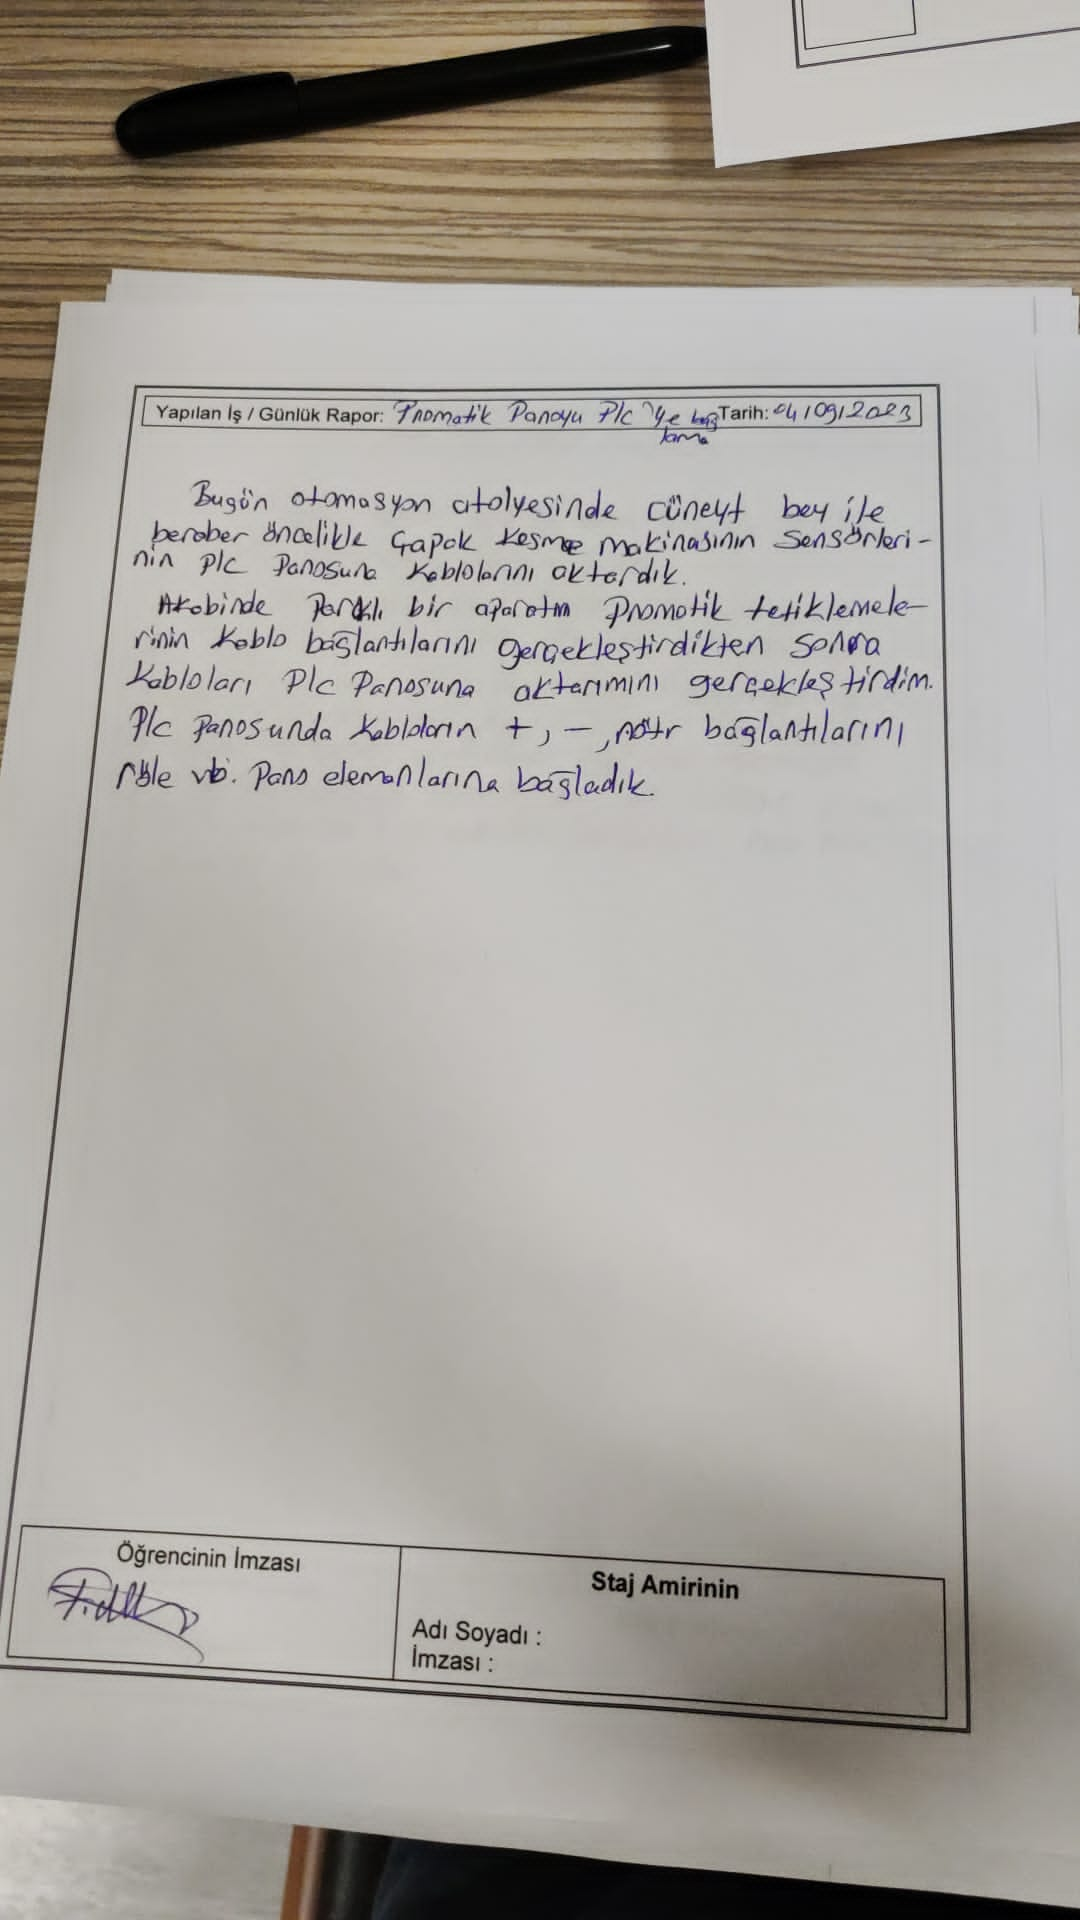 Yapılan İş / Günlük Rapor: Pnomatik Panoyu Plc 'ye bağlama Tarih: 04/09/2023
Bugün otomasyon atolyesinde cüneyt bey ile
beraber öncelikle Çapak Kesme makinasının Sensörleri-
nin Plc Panosuna Kablolarını aktardık.
Akabinde Farklı bir aparatın Pnomatik tetiklemele-
rinin Kablo bağlantılarını gerçekleştirdikten Sonra
Kabloları Plc Panosuna aktarımını gerçekleştirdim.
Plc Panosunda Kabloların +, -, nötr bağlantılarını
röle vb. Pano elemanlarına bağladık.
Öğrencinin İmzası
Staj Amirinin
Adı Soyadı :
İmzası :